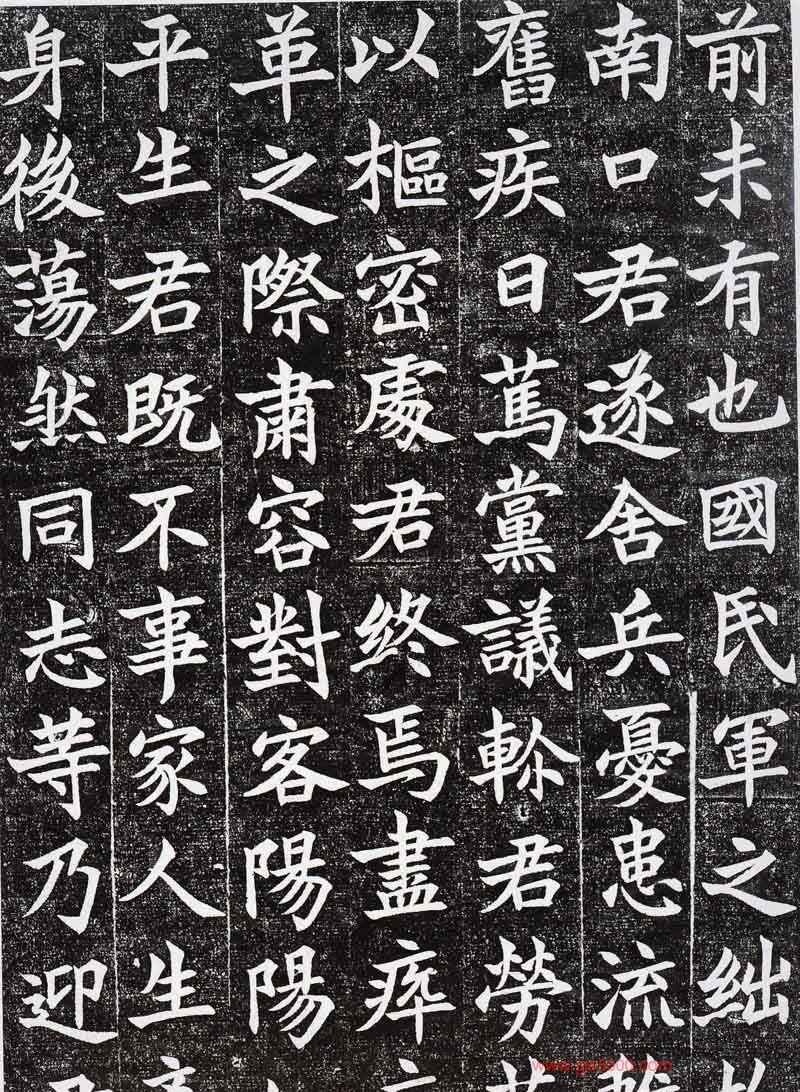 前未有也國民軍之絀
南口君遂舍兵憂患流
舊疾日蔫黨議軫君勞
以樞密處君終焉盡瘁
革之際肅容對客陽陽
平生君既不事家人生
身後蕩然同志等乃迎
www.gw5000.com